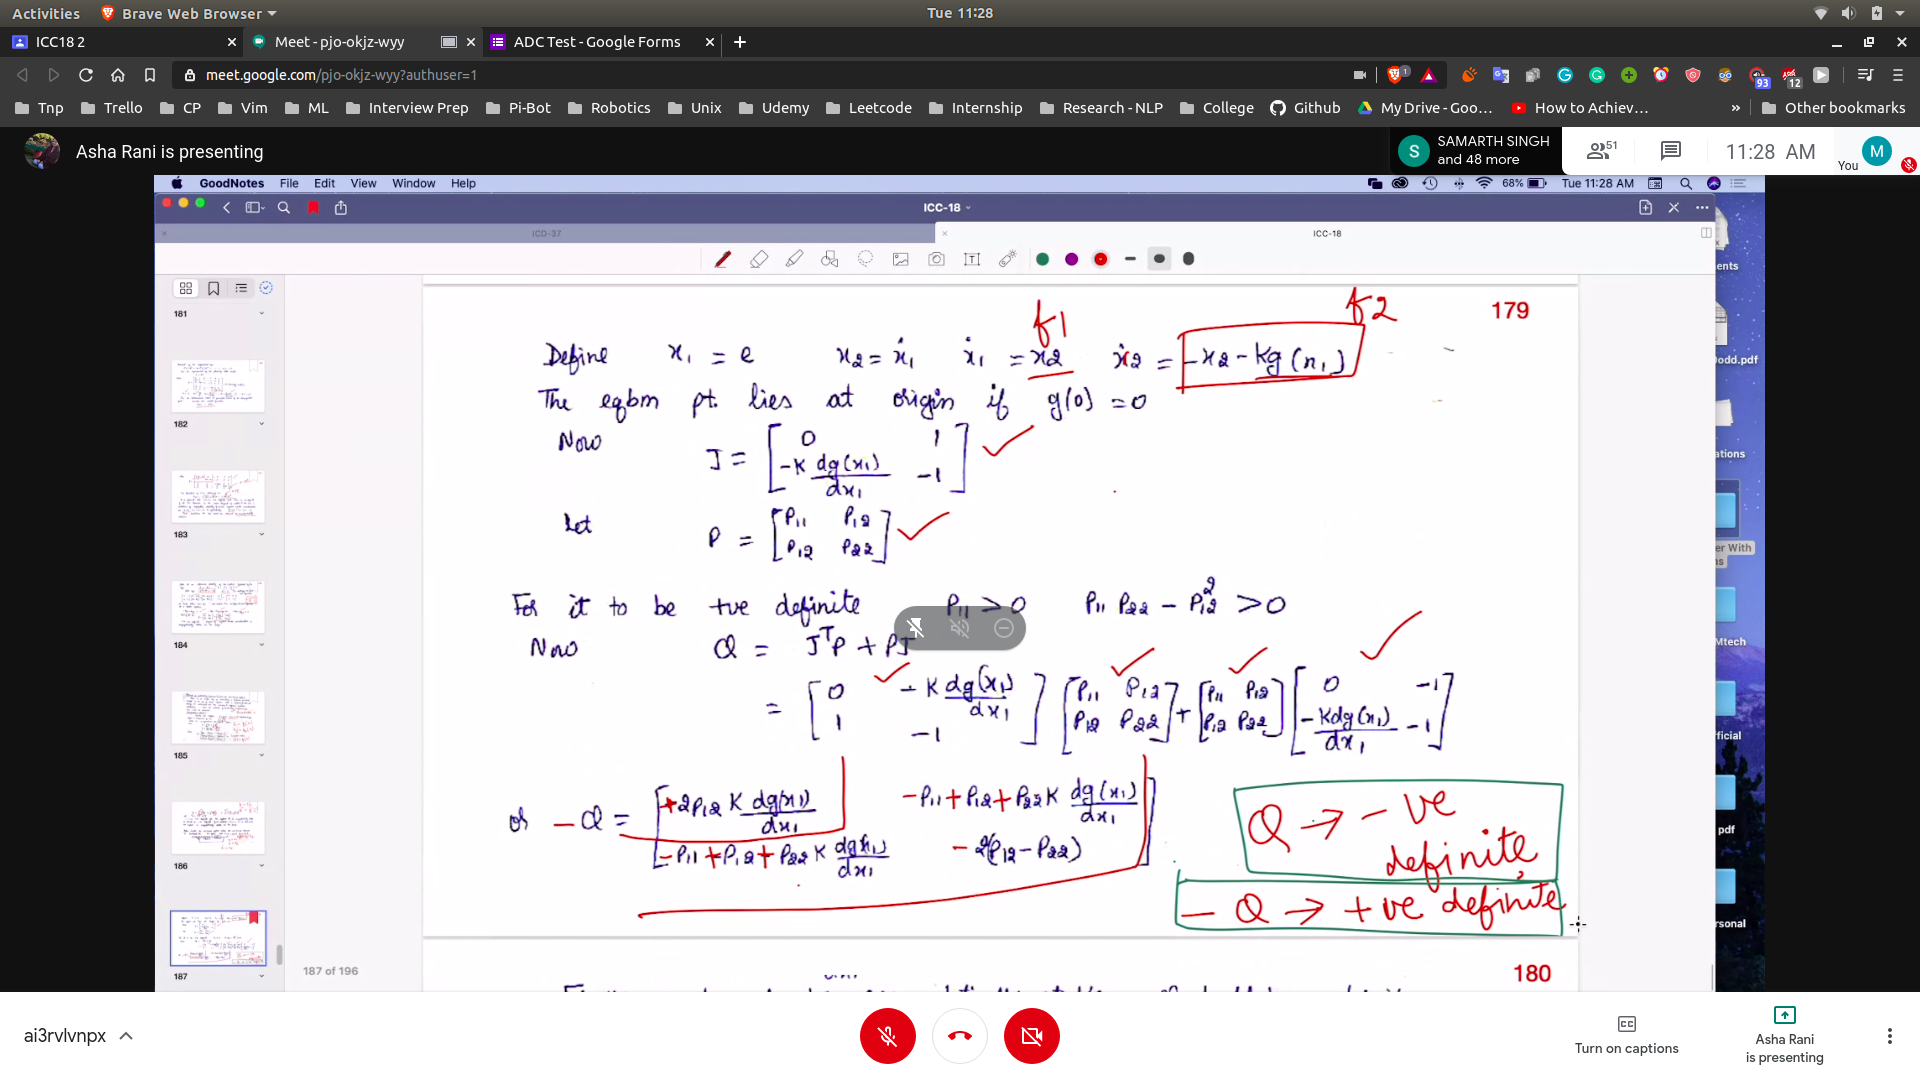 Activities Brave Web Browser Tue 11:28
ICC18 2 Meet - pjo-okjz-wyy ADC Test - Google Forms
meet.google.com/pjo-okjz-wyy?authuser=1 1 93 12
Tnp Trello CP Vim ML Interview Prep Pi-Bot Robotics Unix Udemy Leetcode Internship Research - NLP College Github My Drive - Goo... How to Achiev... » Other bookmarks
Asha Rani is presenting
S SAMARTH SINGH and 48 more 51 11:28 AM You M
GoodNotes File Edit View Window Help 68% Tue 11:28 AM
ICC-18
ICD-37 ICC-18
181
182
183
184
185
186
187
187 of 196
ents
odd.pdf
er With
ns
Mtech
ficial
pdf
rsonal
f1 f2 179
Define x₁ = e x₂ = ẋ₁ ẋ₁ = x₂ ẋ₂ = -x₂ - Kg(x₁)
The eqbm pt. lies at origin if g(0) = 0
Now J = [0 1; -K dg(x₁)/dx₁ -1]
Let P = [P₁₁ P₁₂; P₁₂ P₂₂]
For it to be +ve definite P₁₁ > 0 P₁₁ P₂₂ - P₁₂² > 0
Now Q = JᵀP + PJ
= [0 -K dg(x₁)/dx₁; 1 -1] [P₁₁ P₁₂; P₁₂ P₂₂] + [P₁₁ P₁₂; P₁₂ P₂₂] [0 -1; -K dg(x₁)/dx₁ -1]
or -Q = [+2P₁₂ K dg(x₁)/dx₁ -P₁₁ + P₁₂ + P₂₂ K dg(x₁)/dx₁; -P₁₁ + P₁₂ + P₂₂ K dg(x₁)/dx₁ -2(P₁₂ - P₂₂)]
Q → -ve definite,
-Q → +ve definite
180
ai3rvlvnpx
Turn on captions
Asha Rani
is presenting